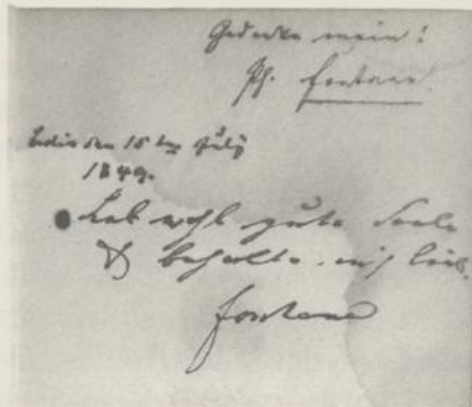 Gedenke mein!
Th. Fontane.
Berlin den 15 ten July
1849.
Leb wohl gute Seele
& behalte mich lieb.
Fontane